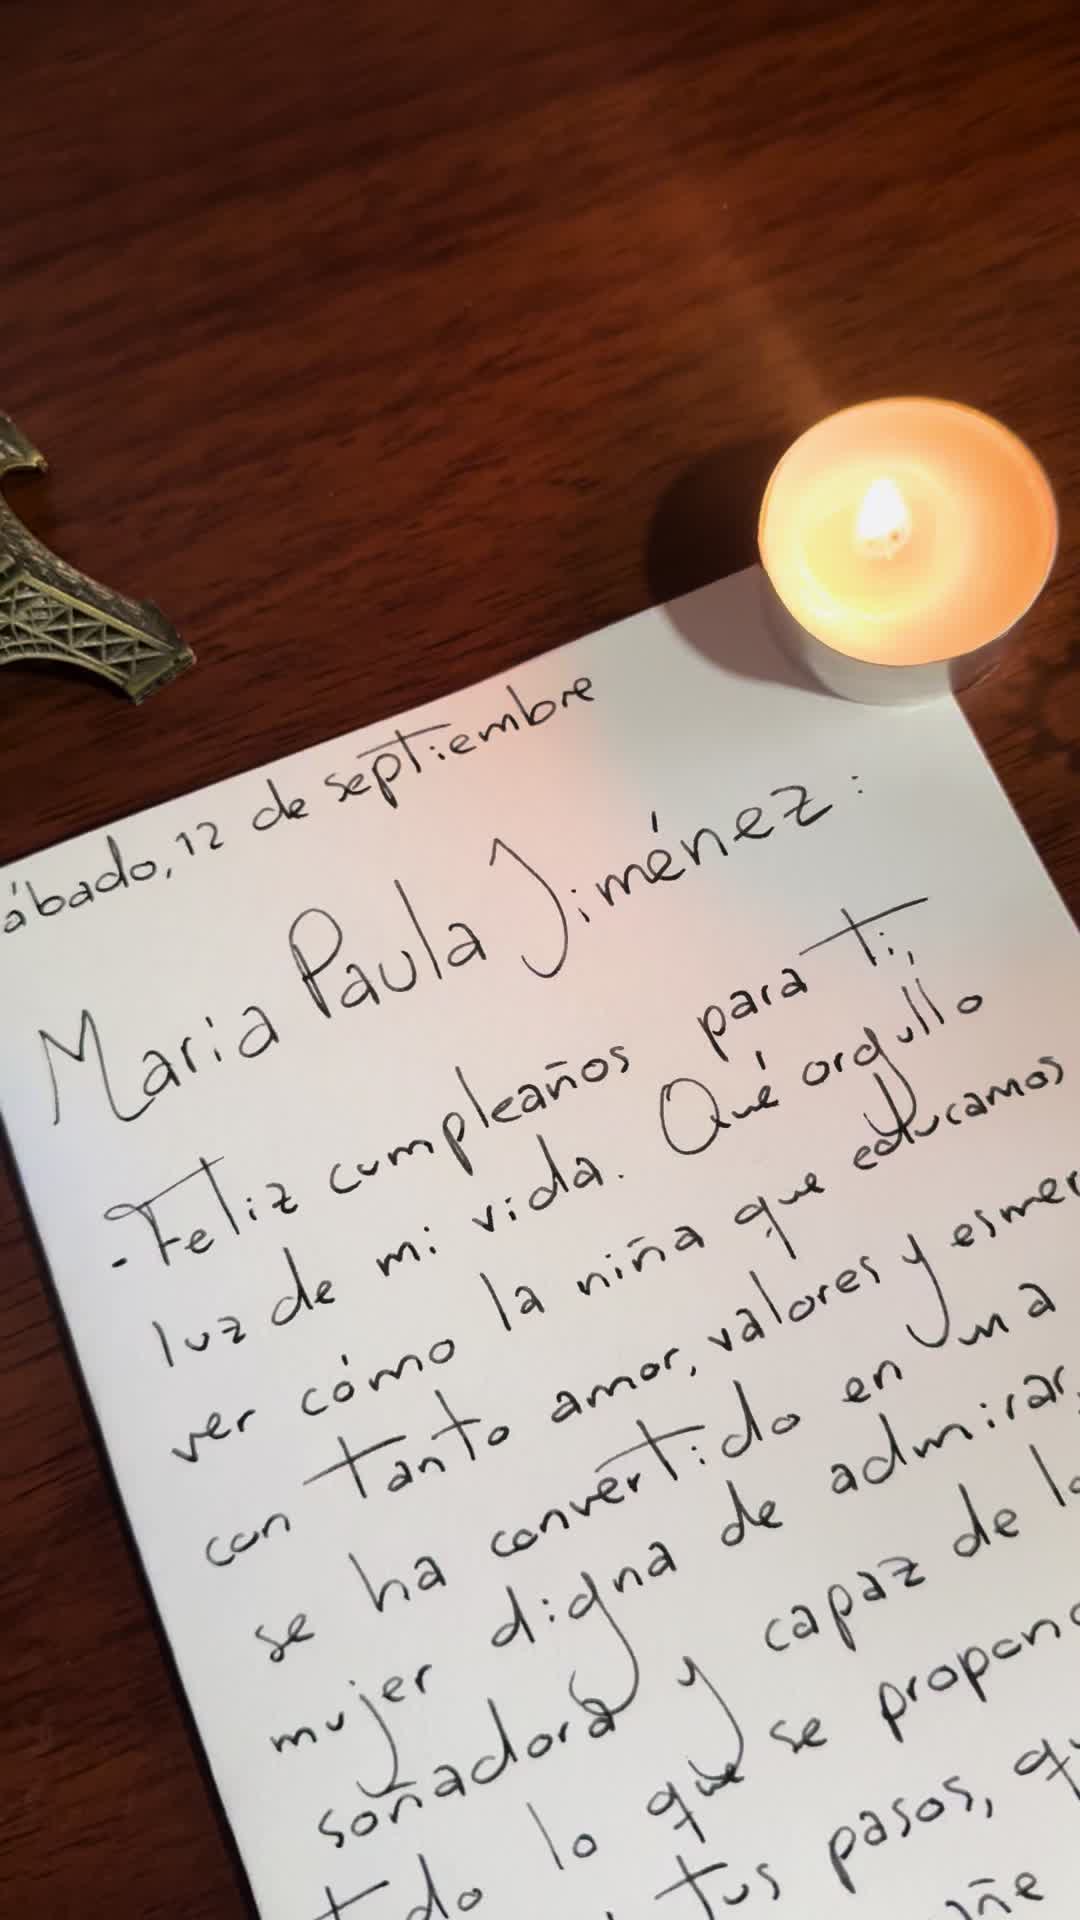 ábado, 12 de septiembre
Maria Paula Jiménez:
- Feliz cumpleaños para ti,
luz de mi vida. Qué orgullo
ver cómo la niña que educamos
con tanto amor, valores y esmer
se ha convertido en una
mujer digna de admirar,
soñadora y capaz de lo
todo lo que se propong
tus pasos, qu